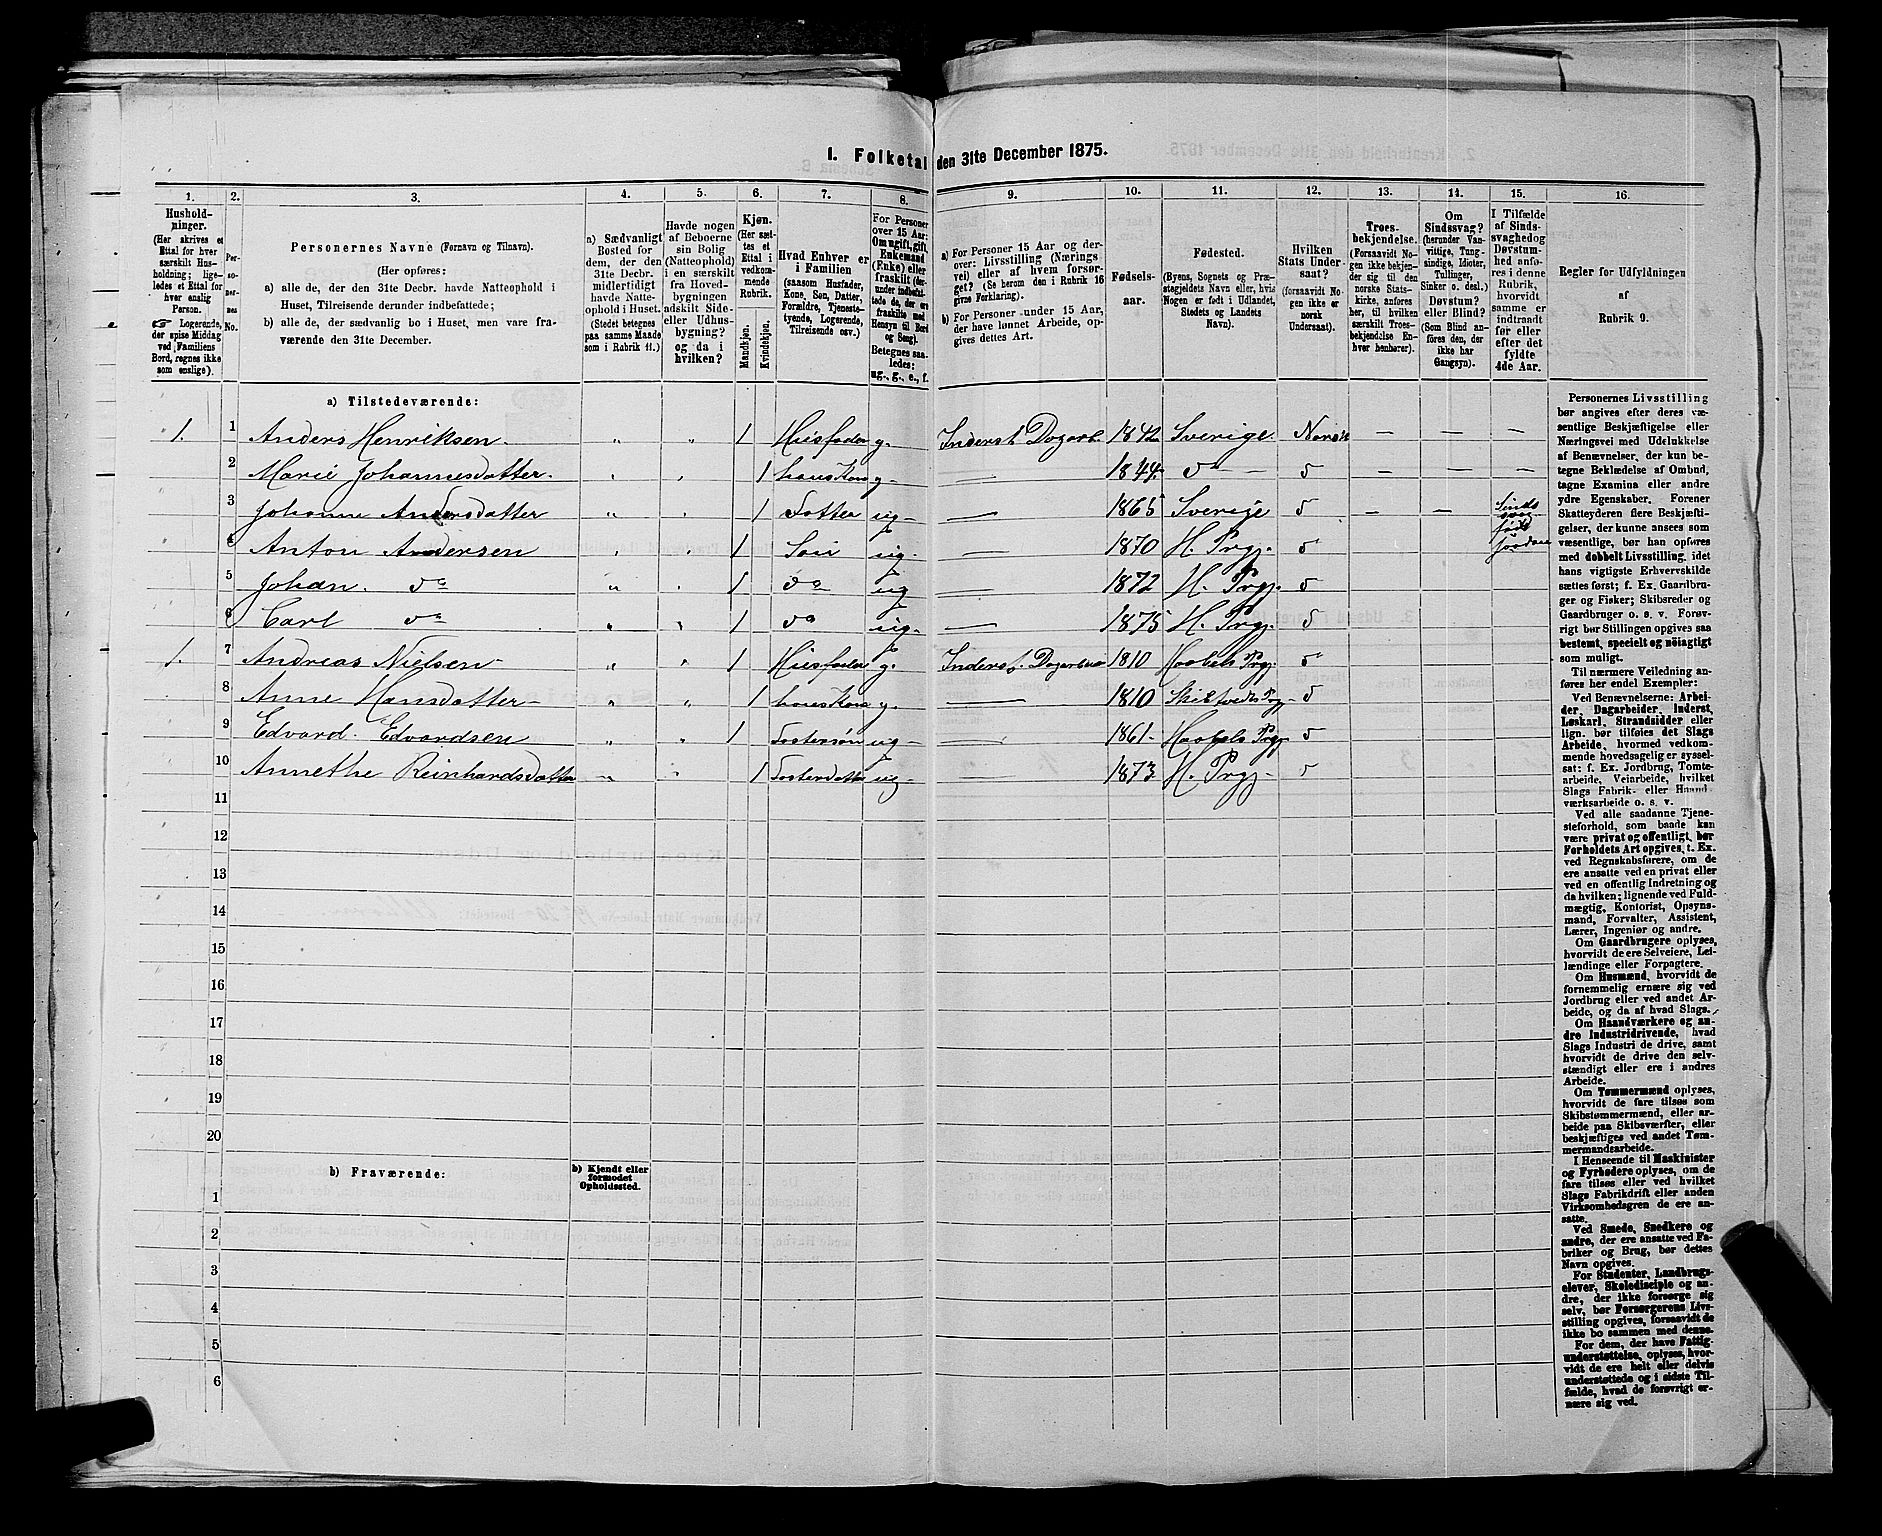 I. Folketal den 31te December 1875.
1. 2. 3. 4. 5. 6. 7. 8. 9. 10. 11. 12. 13. 14. 15. 16.
Hushold-
ninger.
(Her skrives et
Ettal for hver
særskilt Hus-
holdning; lige-
ledes et Ettal for
hver enslig
Person.
☞ Logerende,
der spise Middag
ved Familiens
Bord, regnes ikke
som enslige).
Per-
so-
ner-
nes
No.
Personernes Navne (Fornavn og Tilnavn).
(Her opføres:
a) alle de, der den 31te Decbr. havde Natteophold i
Huset, Tilreisende derunder indbefattede;
b) alle de, der sædvanlig bo i Huset, men vare fra-
værende den 31te December.
a) Sædvanligt
Bosted for
dem, der den
31te Decbr.
midlertidigt
havde Natte-
ophold i Huset.
(Stedet betegnes
paa samme Maade
som i Rubrik 11.)
Havde nogen
af Beboerne
sin Bolig
(Natteophold)
i en særskilt
fra Hoved-
bygningen
adskilt Side-
eller Udhus-
bygning?
og da i
hvilken?
Kjøn.
(Her sæt-
tes et
Ettal i
vedkom-
mende
Rubrik.
Mandkjøn.
Kvindekjøn.
Hvad Enhver er
i Familien
(saasom Husfader,
Kone, Søn, Datter,
Forældre, Tjeneste-
tyende, Logerende,
Tilreisende osv.)
For Personer
over 15 Aar:
Om ugift, gift,
Enkemand
(Enke) eller
fraskilt (der-
under indbefat-
tede de, der ere
fraskilte med
Hensyn til Bord
og Seng).
Betegnes saa-
ledes:
ug., g., e., f.
a) For Personer 15 Aar og der-
over: Livsstilling (Nærings-
vei) eller af hvem forsør-
get? (Se herom den i Rubrik 16
givne Forklaring).
b) For Personer under 15 Aar,
der have lønnet Arbeide, op-
gives dettes Art.
Fødsels-
aar.
Fødested.
(Byens, Sognets og Præ-
stegjeldets Navn eller, hvis
Nogen er født i Udlandet,
Stedets og Landets
Navn).
Hvilken
Stats Under-
saat?
(forsaavidt No-
gen ikke er
norsk
Undersaat).
Troes-
bekjendelse.
(Forsaavidt No-
gen ikke bekjen-
der sig til den
norske Stats-
kirke, anføres
her, til hvilken
særskilt Troes-
bekjendelse En-
hver henhører).
Om
Sindssvag?
(herunder Van-
vittige, Tung-
sindige, Idioter,
Tullinger,
Sinker o. desl.)
Døvstum?
eller Blind?
(Som Blind an-
føres den, der
ikke har
Gangsyn).
I Tilfælde
af Sinds-
svaghed og
Døvstum-
hed anfø-
res i denne
Rubrik,
hvorvidt
samme er
indtraadt
før eller
efter det
fyldte
4de Aar.
Regler for Udfyldningen
af
Rubrik 9.
a) Tilstedeværende:
1. 1 Anders Henriksen. " " 1 Husfader g. Inderst Dagarb. 1842 Sverige. Norsk — — —
2 Marie Johannesdatter. " " 1 hans Kone g. — 1844. do — — — —
3 Johanne Andersdatter " " 1 Datter ug. — 1865 Sverige — — Sinds
svag
født
4 Anton Andersen " " 1 Søn ug. — 1870 H. Prgj.
5 Johan. do " " 1 do ug — 1872 H. Prgj.
6 Carl do " " 1 do ug. — 1875 H. Prgj.
1. 7 Andreas Nielsen " " 1 Husfader g. Inderst. Dagarbeid 1810 Haabøls Prgj.
8 Anne Hansdatter " " 1 hans Kone g. — 1810 Skibtvedts Prgj.
9 Edvard. Edvardsen " " 1 Fostersøn ug — 1861 Haabøls Prgj
10 Annethe Reinhardsdatter " " 1 Fosterdatter ug — 1873 H. Prgj.
11
12
13
14
15
16
17
18
19
20
b) Fraværende:
b) Kjendt eller
formodet
Opholdssted.
1
2
3
4
5
6
Personernes Livsstilling
bør angives efter deres væ-
sentlige Beskjæftigelse eller
Næringsvei med Udelukkelse
af Benævnelser, der kun be-
tegne Beklædelse af Ombud,
tagne Examina eller andre
ydre Egenskaber. Forener
Skatteyderen flere Beskjæfti-
gelser, der kunne ansees som
væsentlige, bør han opføres
med dobbelt Livsstilling, idet
hans vigtigste Erhvervskilde
sættes først; f. Ex. Gaardbru-
ger og Fisker; Skibsreder og
Gaardbruger o. s. v. Forøv-
rigt bør Stillingen opgives saa
bestemt, specielt og nøiagtigt
som muligt.
Til nærmere Veiledning an-
føres her endel Exempler:
Ved Benævnelserne: Arbei-
der, Dagarbeider, Inderst,
Løskarl, Strandsidder eller
lign. bør tilføies det Slags
Arbeide, hvormed vedkom-
mende hovedsagelig er syssel-
sat: f. Ex. Jordbrug, Tomte-
arbeide, Veiarbeide, hvilket
Slags Fabrik- eller Haand-
værksarbeide o. s. v.
Ved alle saadanne Tjene-
steforhold, som baade kan
være privat og offentligt, bør
Forholdets Art opgives, t. Ex.
ved Regnskabsførere, om de
ere ansatte ved en privat eller
ved en offentlig Indretning og
da hvilken; lignende ved Fuld-
mægtig, Kontorist, Opsyns-
mand, Forvalter, Assistent,
Lærer, Ingeniør og andre.
Om Gaardbrugere oplyses,
hvorvidt de ere Selveiere, Lei-
lændinge eller Forpagtere.
Om Husmænd, hvorvidt de
fornemmelig ernære sig ved
Jordbrug eller ved andet Ar-
beide, og da af hvad Slags.
Om Haandværkere og an-
dre Industridrivende, hvad
Slags Industri de drive, samt
hvorvidt de drive den selv-
stændigt eller ere i andres
Arbeide.
Om Tømmermænd oplyses,
hvorvidt de fare tilsøs som
Skibstømmermænd, eller ar-
beide paa Skibsværfter, eller
beskjæftiges ved andet Tøm-
mermandsarbeide.
I Henseende til Maskinister
og Fyrbødere oplyses, om de
fare tilsøs eller ved hvilket
Slags Fabrikdrift eller anden
Virksomhedsgren de ere an-
satte.
Ved Smede, Snedkere og
andre, der ere ansatte ved Fa-
briker og Brug, bør dettes
Navn opgives.
For Studenter, Landbrugs-
elever, Skoledisciple og an-
dre, der ikke forsørge sig
selv, bør Forsørgerens Livs-
stilling opgives, forsaavidt de
ikke bo sammen med denne.
For dem, der have Fattig-
understøttelse, oplyses, hvor-
vidt de ere helt eller delvis
understøttede og i sidste Til-
fælde, hvad de forøvrigt er-
nære sig ved.